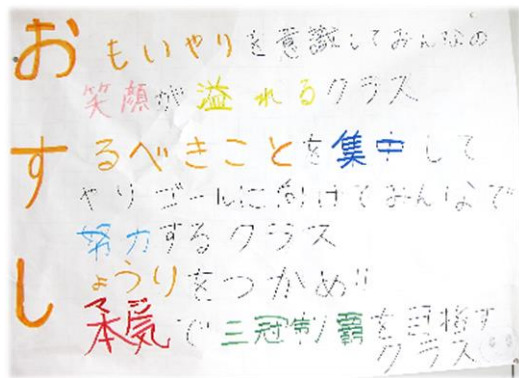 おもいやりを意識してみんなの
笑顔が溢れるクラス
するべきことを集中して
やりゴールに向けてみんなで
努力するクラス
しょうりをつかめ!!
マジ
本気で三冠制覇を目指す
クラス